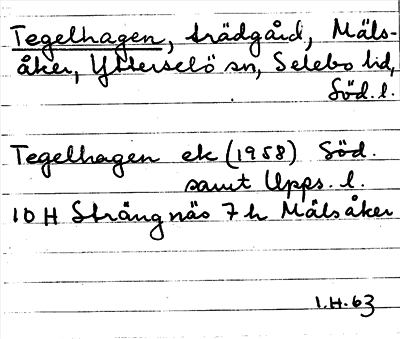 Tegelhagen, trädgård, Mäls-
åker, Ytterselö sn, Selebo hd,
Söd. l.
Tegelhagen ek (1958) Söd.
samt Upps. l.
10 H Strängnäs 7 h Mälsåker
1.H.63